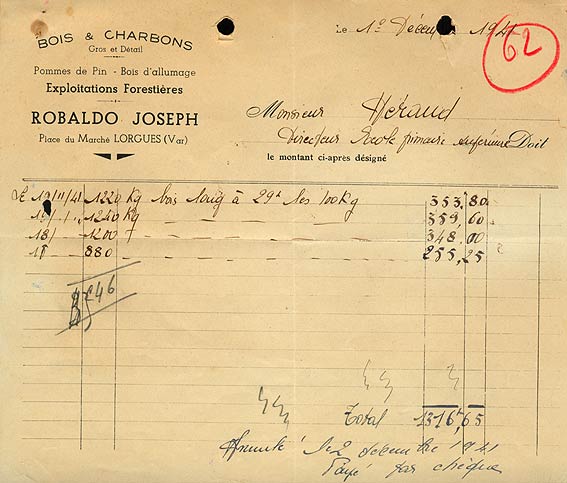 BOIS & CHARBONS
Gros et Détail
Pommes de Pin - Bois d'allumage
Exploitations Forestières
ROBALDO JOSEPH
Place du Marché LORGUES (Var)
Le 1º Décem 1941
62
Monsieur Héraud
Directeur Ecole primaire supérieure Doit
le montant ci-après désigné
1220 Kg bois long à 29f les 100Kg 353,80
1240 Kg 359,60
18/ 1200 348,00
880 255,25
Total 1316f,65
le 2 décembre 1941
Payé par chèque